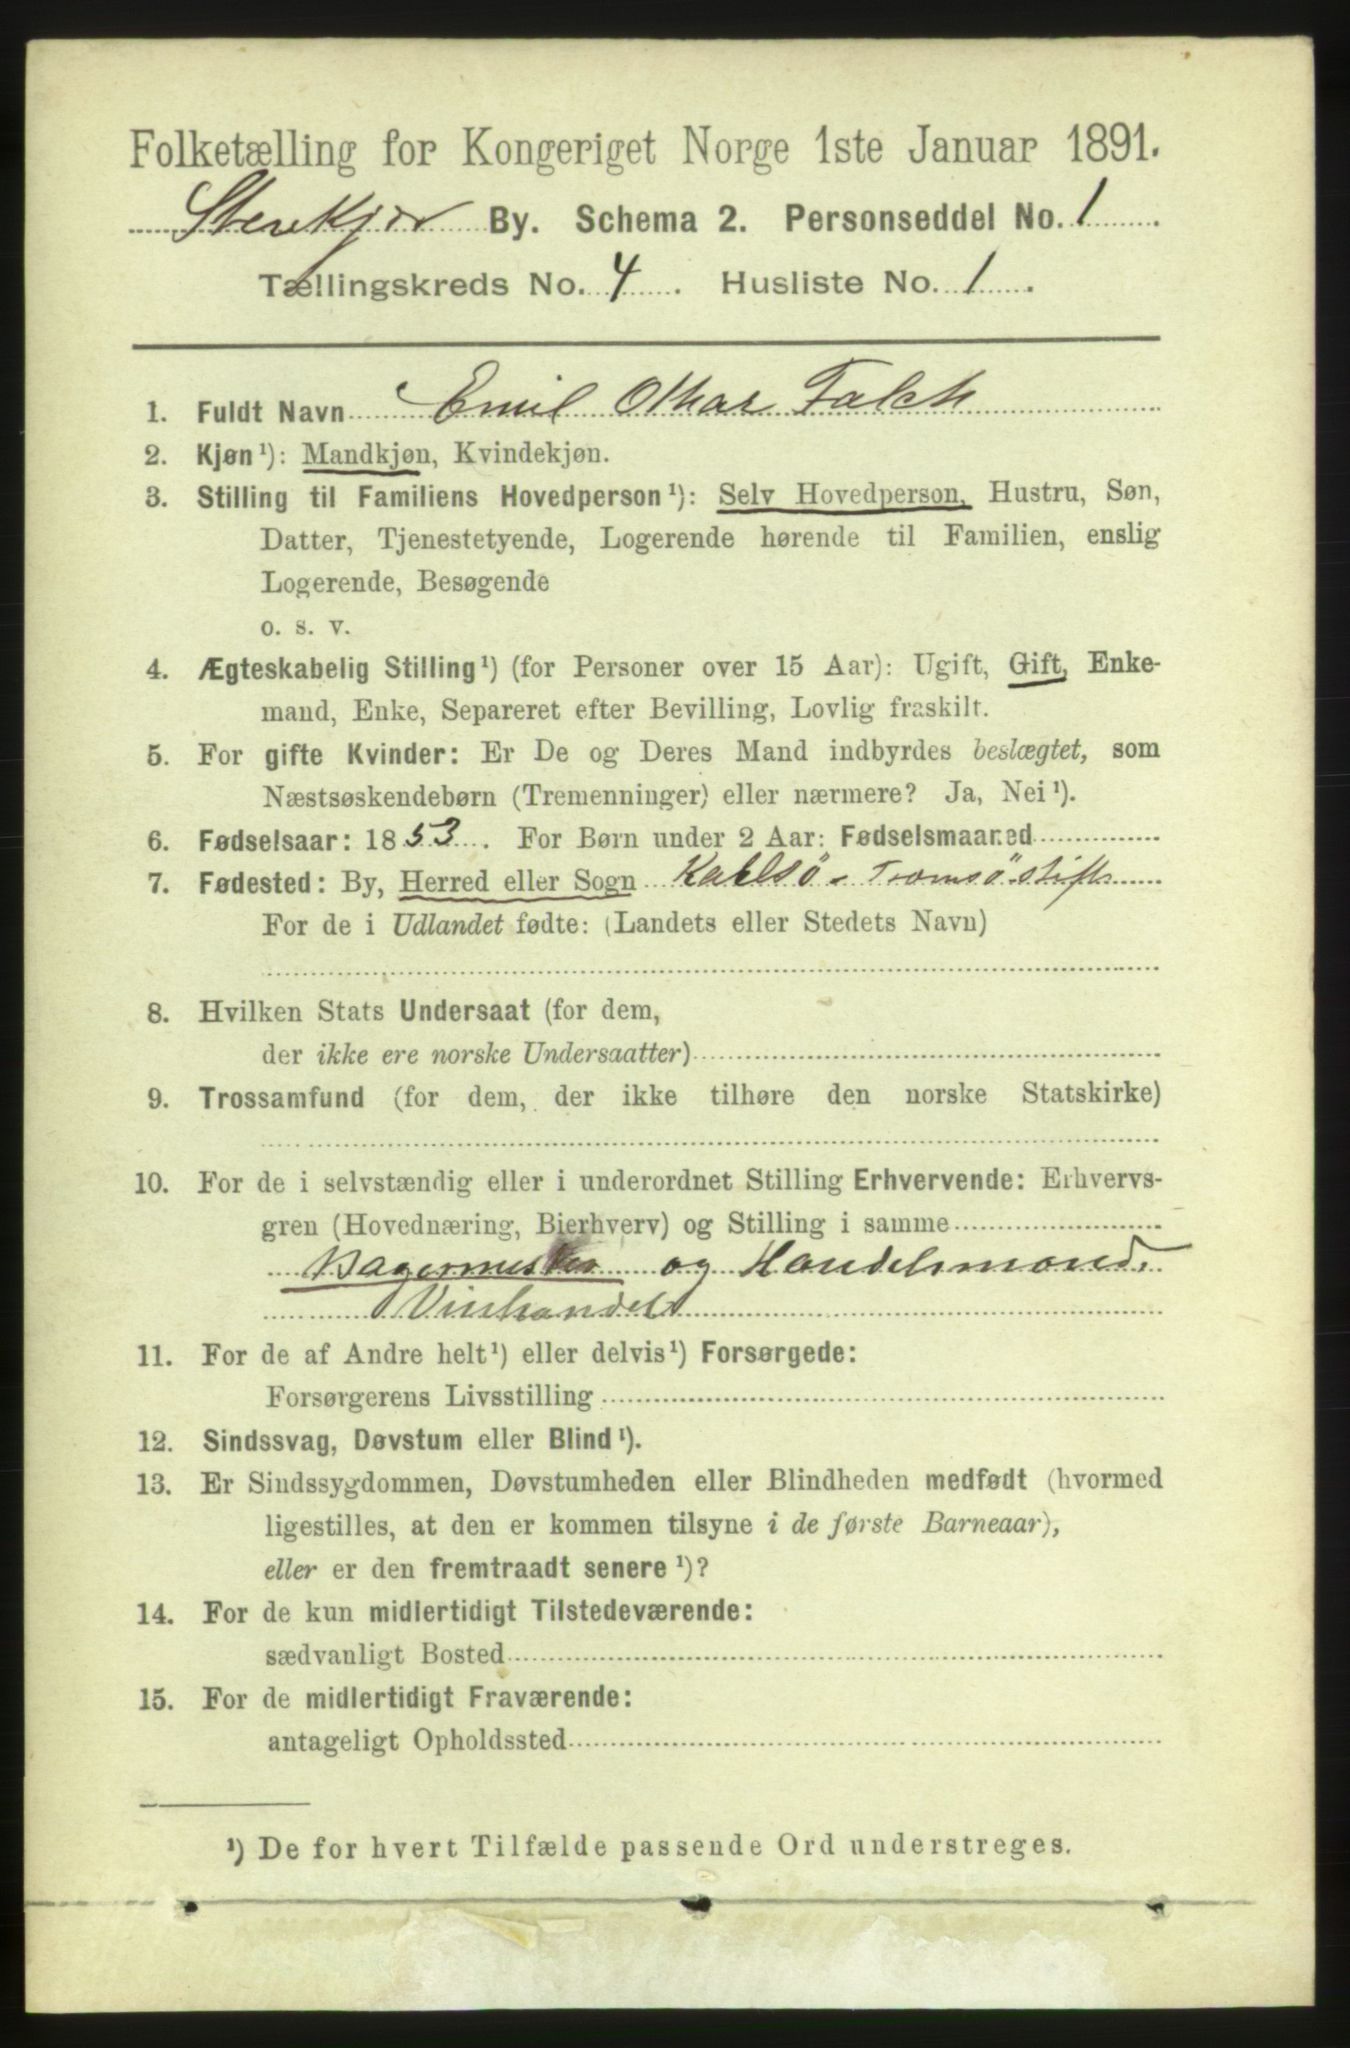 Folketælling for Kongeriget Norge 1ste Januar 1891.
Stenkjær By. Schema 2. Personseddel No. 1
Tællingskreds No. 4. Husliste No. 1.
1. Fuldt Navn Emil Othar Falch
2. Kjøn¹): Mandkjøn, Kvindekjøn.
3. Stilling til Familiens Hovedperson¹): Selv Hovedperson, Hustru, Søn,
Datter, Tjenestetyende, Logerende hørende til Familien, enslig
Logerende, Besøgende
o. s. v.
4. Ægteskabelig Stilling¹) (for Personer over 15 Aar): Ugift, Gift, Enke-
mand, Enke, Separeret efter Bevilling, Lovlig fraskilt.
5. For gifte Kvinder: Er De og Deres Mand indbyrdes beslægtet, som
Næstsøskendebørn (Tremenninger) eller nærmere? Ja, Nei¹).
6. Fødselsaar: 1853. For Børn under 2 Aar: Fødselsmaaned
7. Fødested: By, Herred eller Sogn Karlsö - Tromsöstift
For de i Udlandet fødte: (Landets eller Stedets Navn)
8. Hvilken Stats Undersaat (for dem,
der ikke ere norske Undersaatter)
9. Trossamfund (for dem, der ikke tilhøre den norske Statskirke)
10. For de i selvstændig eller i underordnet Stilling Erhvervende: Erhvervs-
gren (Hovednæring, Bierhverv) og Stilling i samme
Bagermester og Handelsmand,
Vinhandel
11. For de af Andre helt¹) eller delvis¹) Forsørgede:
Forsørgerens Livsstilling
12. Sindssvag, Døvstum eller Blind¹).
13. Er Sindssygdommen, Døvstumheden eller Blindheden medfødt (hvormed
ligestilles, at den er kommen tilsyne i de første Barneaar),
eller er den fremtraadt senere¹)?
14. For de kun midlertidigt Tilstedeværende:
sædvanligt Bosted
15. For de midlertidigt Fraværende:
antageligt Opholdssted
¹) De for hvert Tilfælde passende Ord understreges.